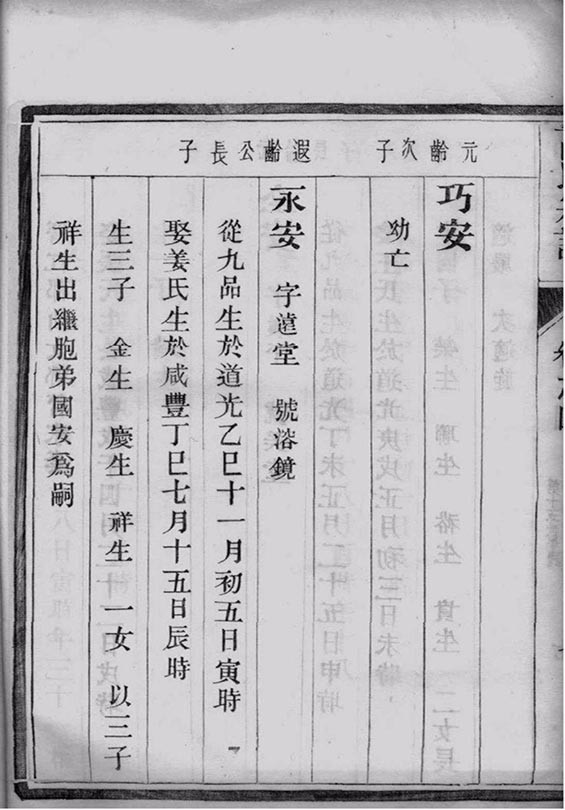 元齡次子
巧安
幼亡
遐齡公長子
永安 字遠堂 號溶鏡
從九品生於道光乙巳十一月初五日寅時
娶姜氏生於咸豐丁巳七月十五日辰時
生三子 金生 慶生 祥生 一女 以三子
祥生出繼胞弟國安爲嗣